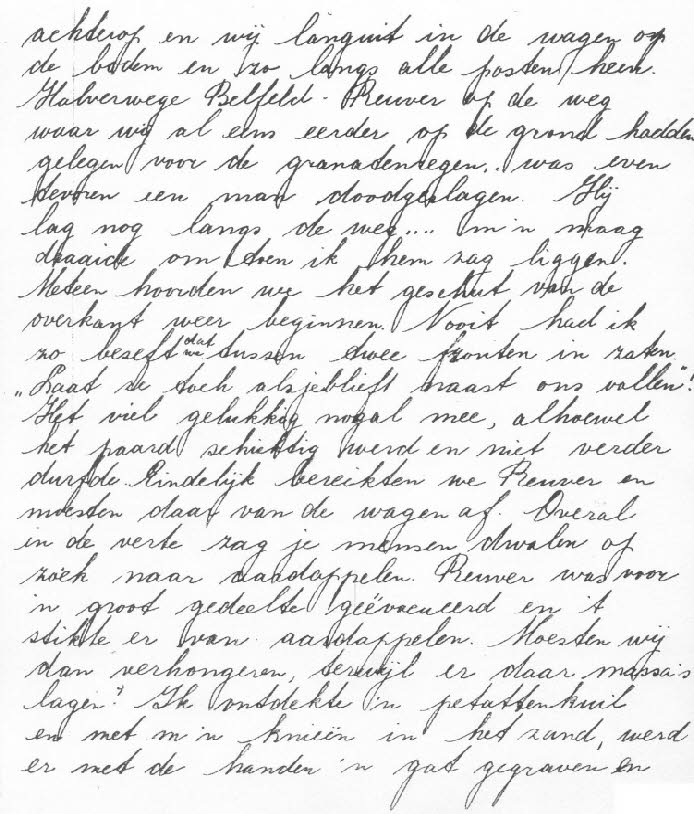 achterop en wij languit in de wagen op
de bodem en zo langs alle posten heen.
Halverwege Belfeld - Reuver op de weg
waar wij al eens eerder op de grond hadden
gelegen voor de granatenregen.. was even
tevoren een man doodgeslagen. Hij
lag nog langs de weg.... m'n maag
draaide om toen ik hem zag liggen.
Meteen hoorden we het geschut van de
overkant weer beginnen. Nooit had ik
zo beseft dat we tussen twee fronten in zaten.
„Laat ze toch alsjeblieft naast ons vallen"!
Het viel gelukkig nogal mee, alhoewel
het paard schichtig werd en niet verder
durfde. Eindelijk bereikten we Reuver en
moesten daar van de wagen af. Overal
in de verte zag je mensen dwalen op
zoek naar aardappelen. Reuver was voor
'n groot gedeelte geëvacueerd en 't
stikte er van aardappelen. Moesten wij
dan verhongeren, terwijl er daar massa's
lagen? Ik ontdekte 'n petattenkuil
en met m'n knieën in het zand, werd
er met de handen 'n gat gegraven en